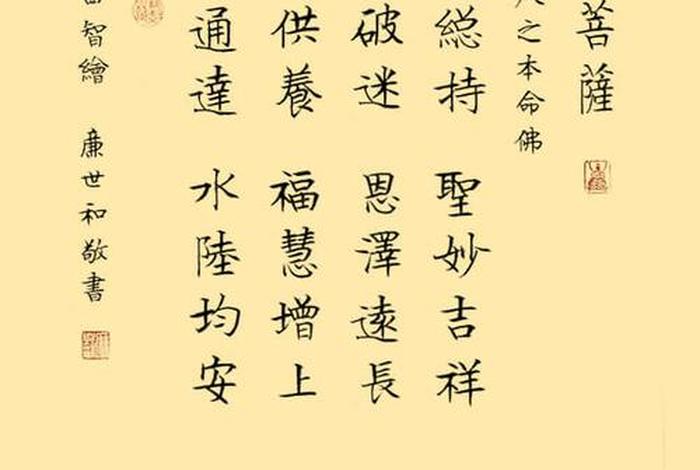 菩薩
之本命佛
総持 聖妙吉祥
破迷 恩澤遠長
供養 福慧增上
通達 水陸均安
智繪 廉世和敬書